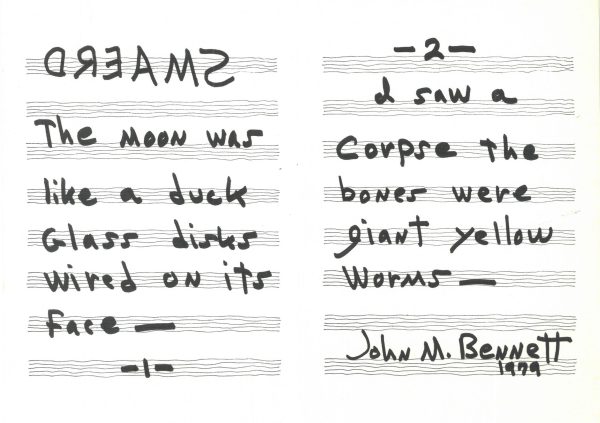 DREAMS
The moon was
like a duck
Glass disks
wired on its
face —
-1-
-2-
I saw a
Corpse the
bones were
giant yellow
Worms —
John M. Bennett
1979